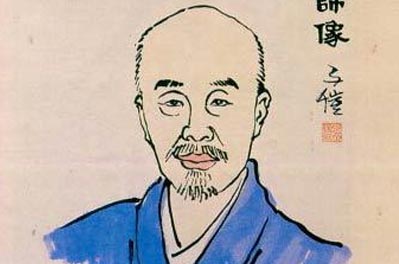 師像
子愷